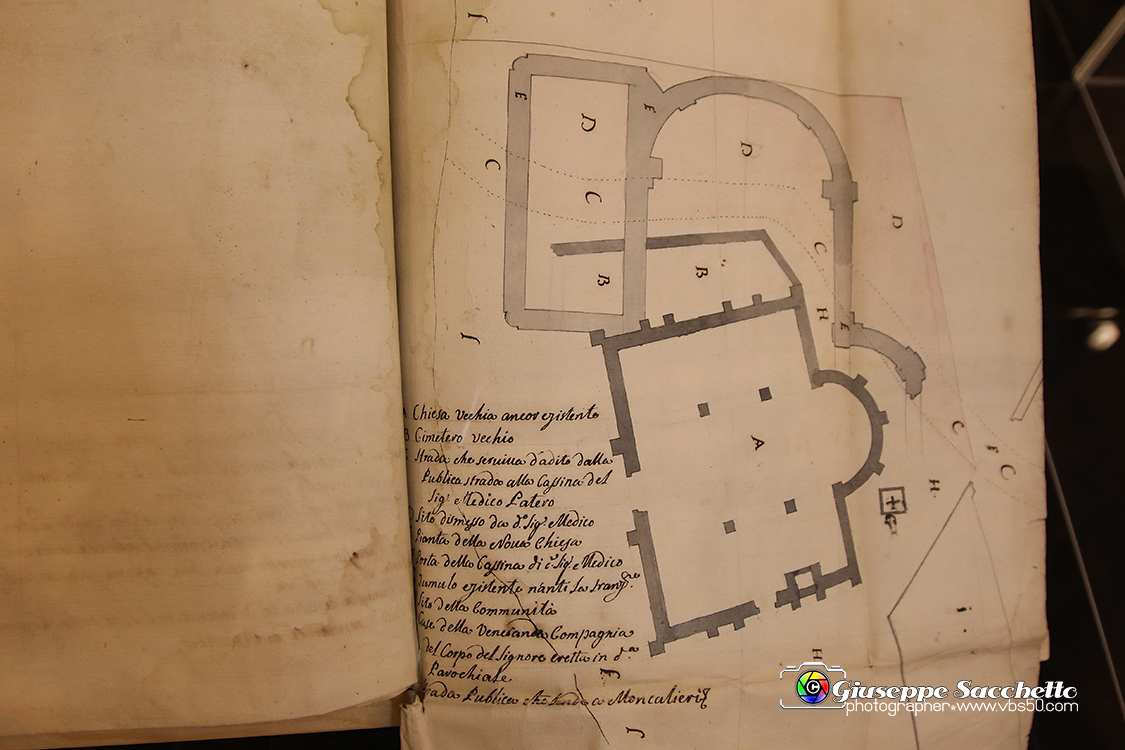 J
E
E
D
D
C
C
D
C
B
B
H
E
J
A
C
F
C
H
G
i
H
J
A Chiesa Vechia ancor existente
B Cimetero Vechio
Strada che serviva d'adito dalla
Publica strada alla Cassina del
Sig.r Medico Patero
Sito dismesso da d.o Sig.r Medico
Pianta della Nova Chiesa
Porta della Cassina di Sig.r Medico
existente
Sito della Communità
Case della Veneranda Compagnia
del Corpo del Signore eretta in d.a
Parochiale
Strada Publica che tende a Moncalieri
Giuseppe Sacchetto
photographer • www.vbs50.com